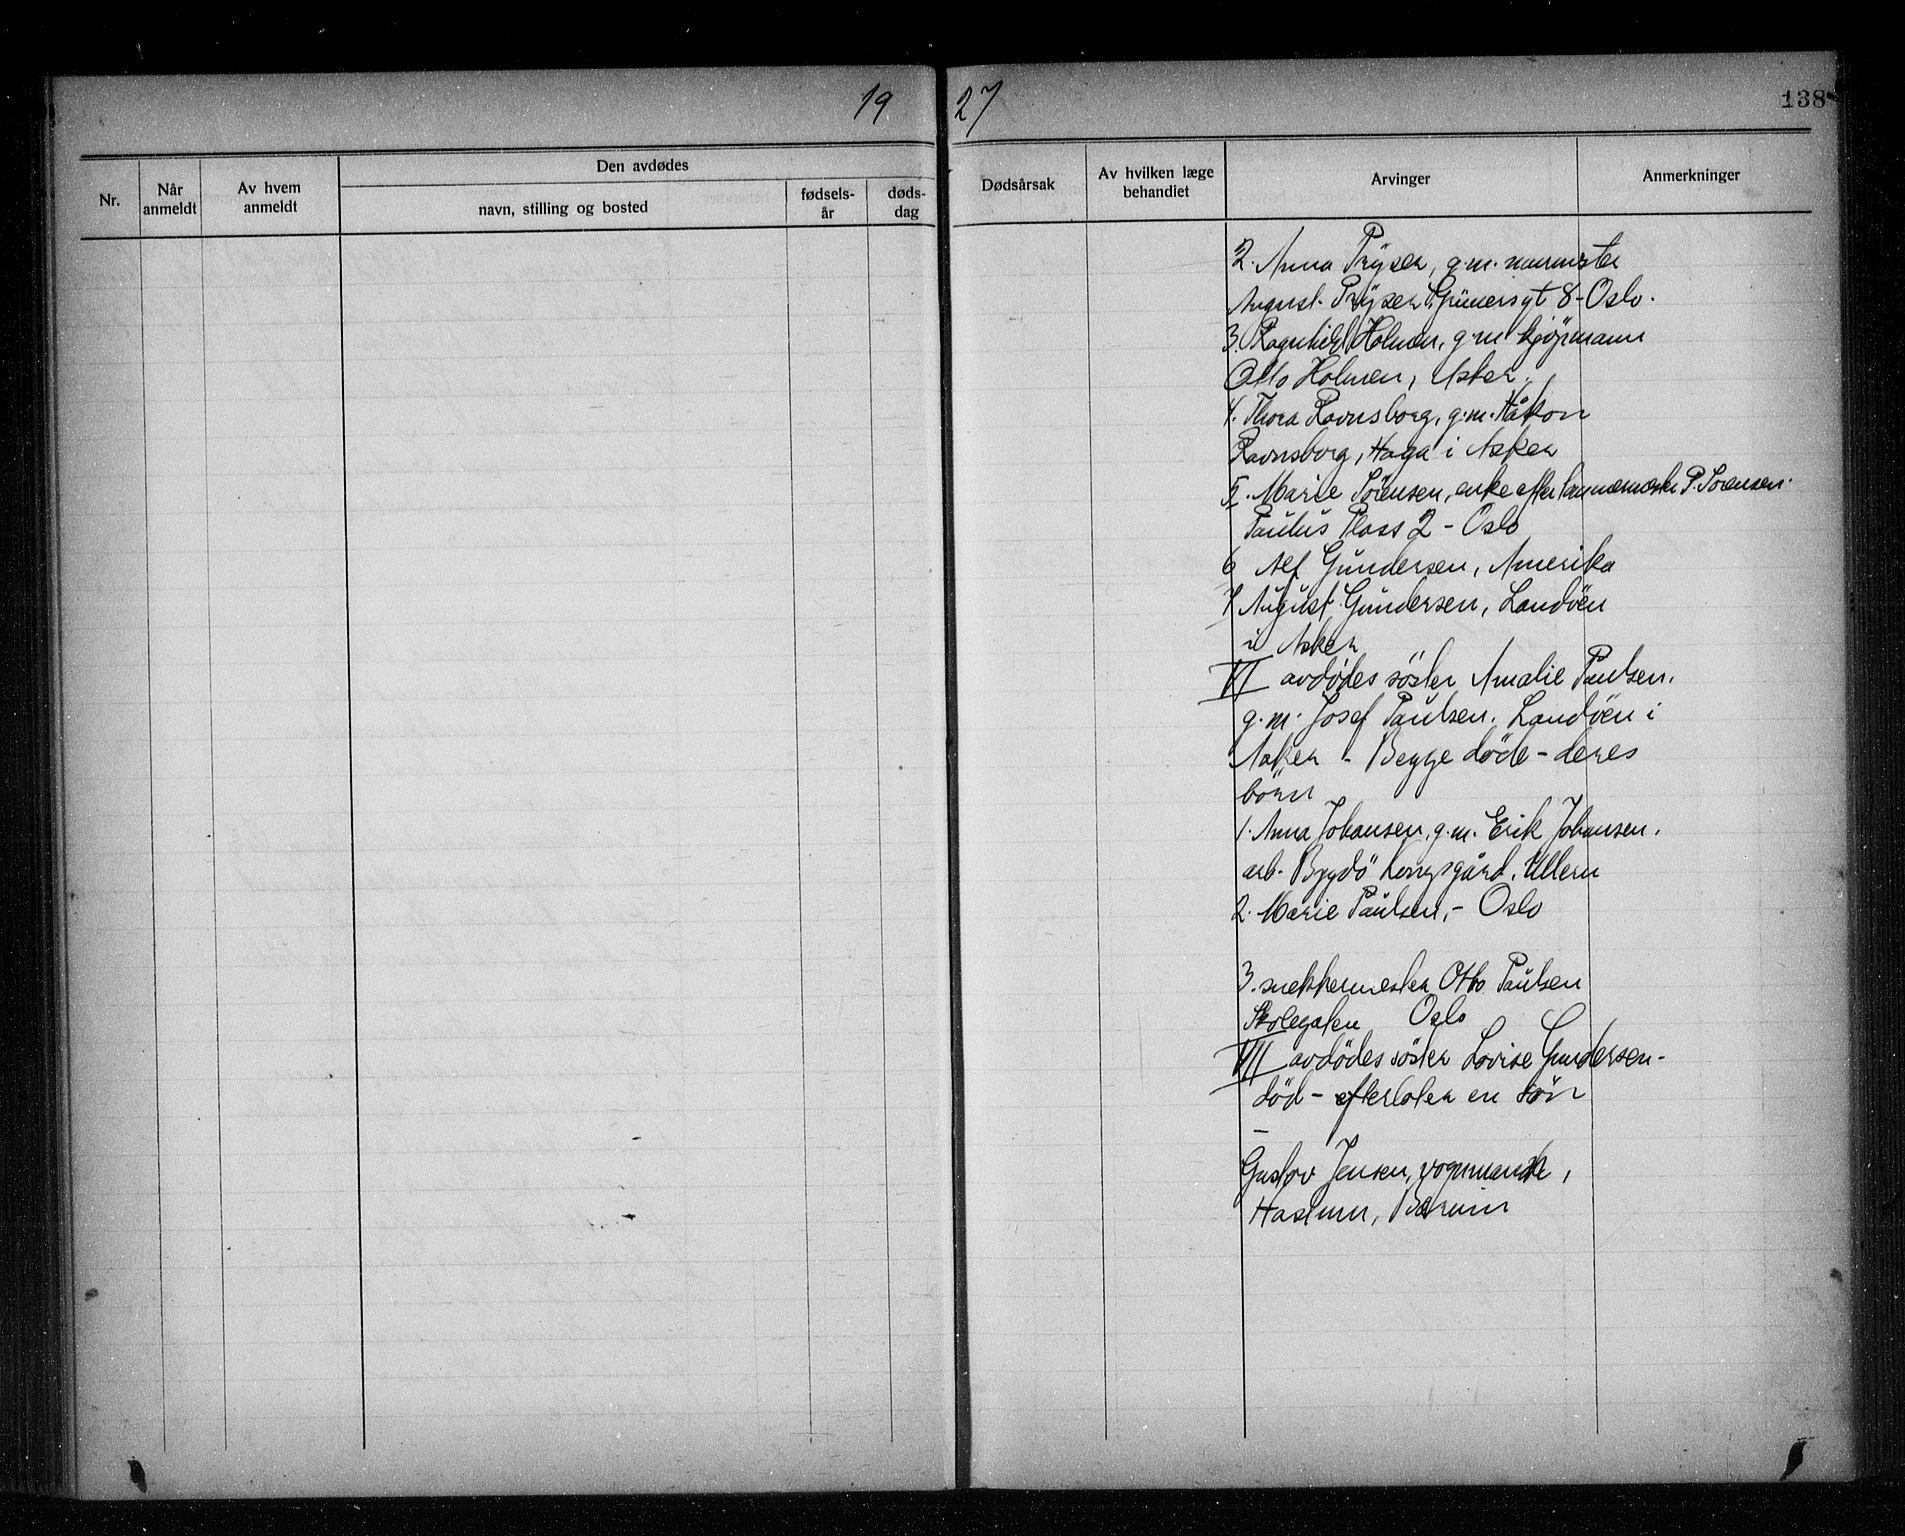 19 27
138
Nr.
Når anmeldt
Av hvem anmeldt
Den avdødes
navn, stilling og bosted
fødsels-år
døds-dag
Dødsårsak
Av hvilken læge behandlet
Arvinger
Anmerkninger
2. Anna Prÿser, g.m. murmster
August Prÿser Grünersgt 8 - Oslo.
3. Ragnhild Holmen, g.m kjøpmann
Otto Holmen, Asker.
4. Thora Ravnsborg, g.m. Håkon
Ravnsborg, Haga i Asker
5. Marie Sörensen, enke efter P. Sörensen.
Paulus Plass 2 - Oslo
6 Alf Gundersen, Amerika
7 August Gundersen, Landöen
i Asker
VI avdødes söster Amalie Paulsen.
g.m. Josef Paulsen. Landöen i
Asker - Begge døde - deres
börn
1. Anna Johansen, g.m. Erik Johansen.
arb. Bygdö kongsgård. Ullern
2. Marie Paulsen, - Oslo
3. snekkermester Otto Paulsen
Skolegaten Oslo
VII avdödes söster Lovise Gundersen -
död - efterlater en sön
-
Gustav Jensen, vognmand,
Haslum, Bærum